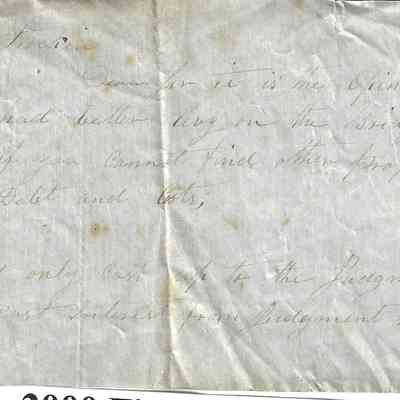 it is me opin
had better levy on the
if you cannot find other prop
Debt and Costs,
only Cast up to the Judgm
cast interest from Judgment
2000